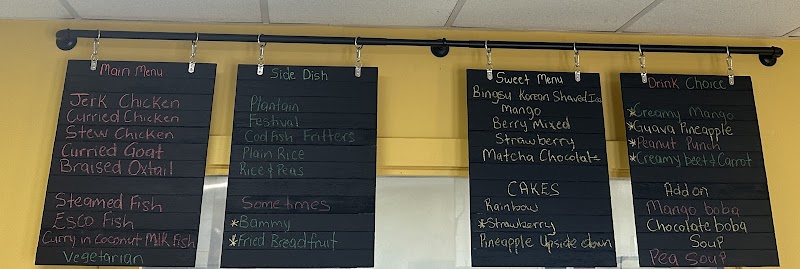 Main Menu
Jerk Chicken
Curried Chicken
Stew Chicken
Curried Goat
Braised Oxtail
Steamed Fish
Esco Fish
Curry in Coconut Milk Fish
Vegetarian
Side Dish
Plantain
Festival
Codfish Fritters
Plain Rice
Rice & Peas
Sometimes
*Bammy
*Fried Breadfruit
Sweet Menu
Bingsu Korean Shaved Ice
Mango
Berry Mixed
Strawberry
Matcha Chocolate
CAKES
Rainbow
*Strawberry
Pineapple Upside down
Drink Choice
*Creamy Mango
*Guava Pineapple
*Peanut Punch
*Creamy beet & Carrot
Add on
Mango boba
Chocolate boba
Soup
Pea Soup